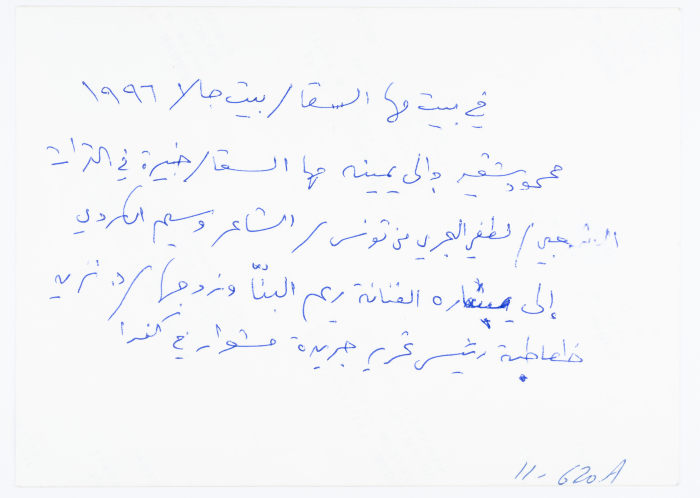 في بيت مها السقا / بيت جالا ١٩٩٦
محمود شقير وإلى يمينه مها السقا / خبيرة في التراث
الشعبي / لطفي البحري من تونس / الشاعر وسيم الكردي
إلى يساره الفنانة ريم البنّا وزوجها / د. نزيه
خلطبة رئيس تحرير جريدة مشوار في كندا
11-620A